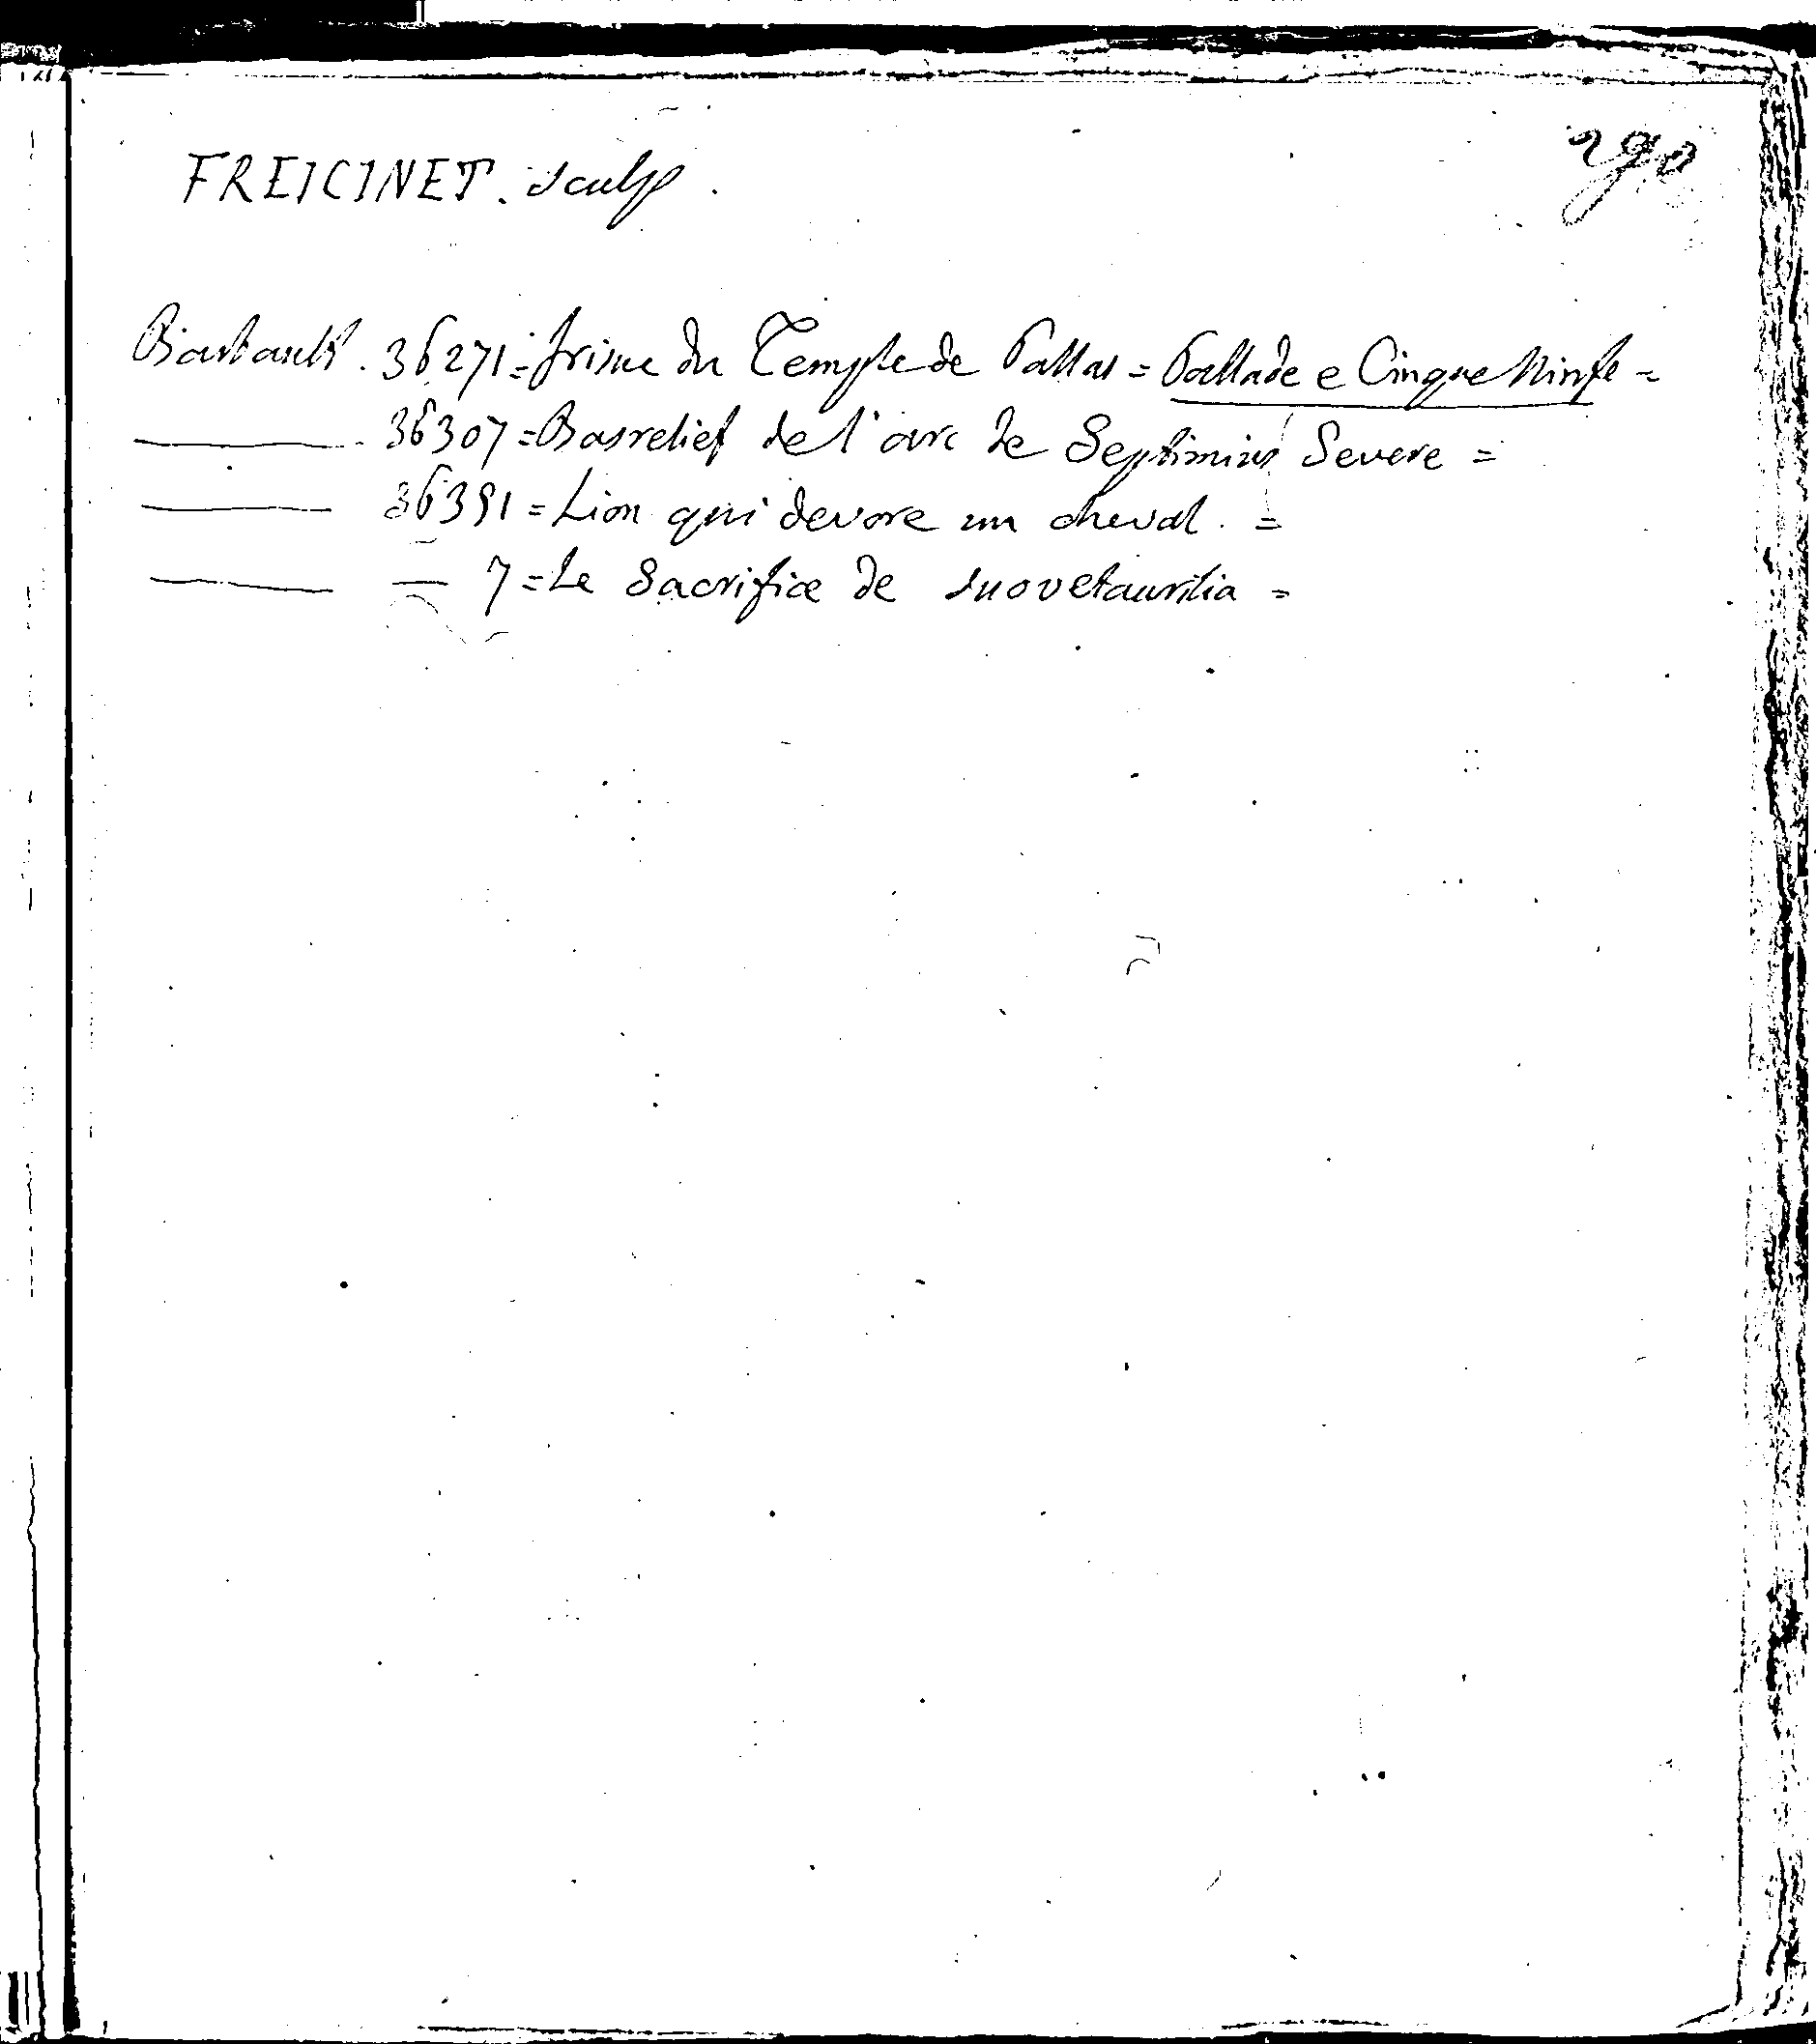 290
FREICINET. sculp.
36271 = frise du Temple de Pallas = Pallade e Cinque Ninfe =
36307 = Basrelief de l'arc de Septimius Severe =
36391 = Lion qui devore un cheval. =
— 7 = Le Sacrifice de suovetaurilia =